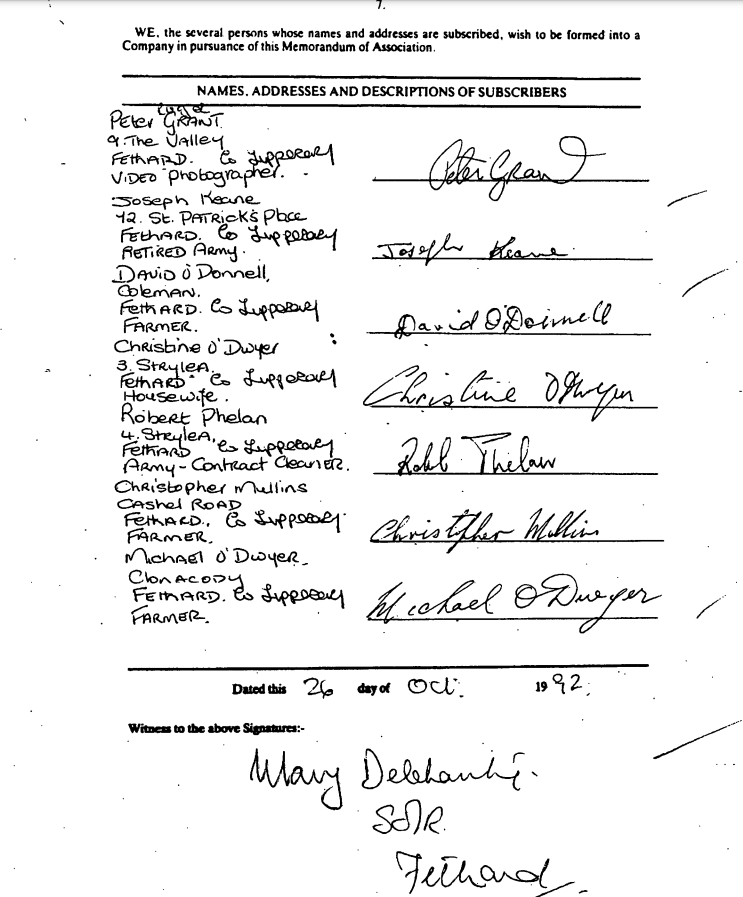 7.
WE, the several persons whose names and addresses are subscribed, wish to be formed into a
Company in pursuance of this Memorandum of Association.
NAMES, ADDRESSES AND DESCRIPTIONS OF SUBSCRIBERS
Peter GRANT
9. The Valley
FETHARD. Co Tipperary
VIDEO Photographer.
Peter Grant
Joseph Keane
12. St. PATRICK'S Place
FETHARD. Co Tipperary
RETIRED ARMY.
Joseph Keane
DAVID O'Donnell,
Coleman.
FETHARD. Co Tipperary
FARMER.
David O'Donnell
Christine O'Dwyer
3. Strylea,
Fethard Co Tipperary
Housewife.
Christine O'Dwyer
Robert Phelan
4. Strylea,
Fethard, Co Tipperary
Army-Contract Cleaner.
Phelan
Christopher Mullins
Cashel ROAD
Fethard., Co Tipperary.
FARMER.
Christopher Mullins
Michael O'Dwyer
Clonacody
FETHARD. Co Tipperary
FARMER.
Michael O Dwyer
Dated this 26 day of Oct. 1992.
Witness to the above Signatures:-
Mary Delehanty.
Solr.
Fethard